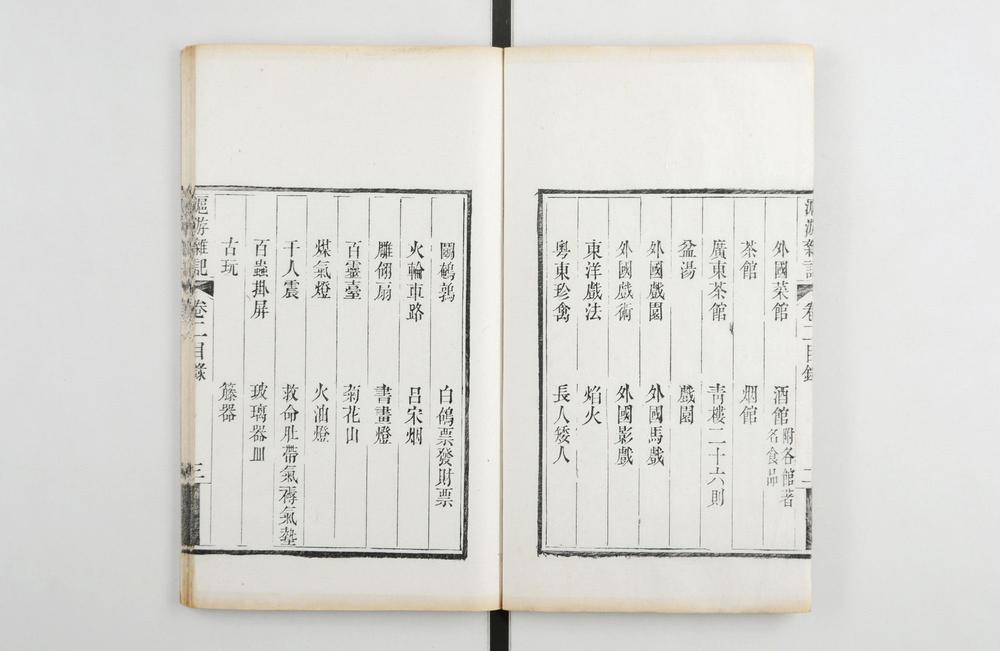 滬游雜記 卷二目錄 二
外國菜館 酒館 附各館著名食品
茶館 烟館
廣東茶館 青樓二十六則
盆湯 戲園
外國戲園 外國馬戲
外國戲術 外國影戲
東洋戲法 焰火
粵東珍禽 長人矮人
鬭鵪鶉 白鴿票發財票
火輪車路 呂宋烟
雕翎扇 書畫燈
百靈臺 菊花山
煤氣燈 火油燈
千人震 救命肚帶氣褥氣墊
百蟲掛屏 玻璃器皿
古玩 籐器
滬游雜記 卷二目錄 三